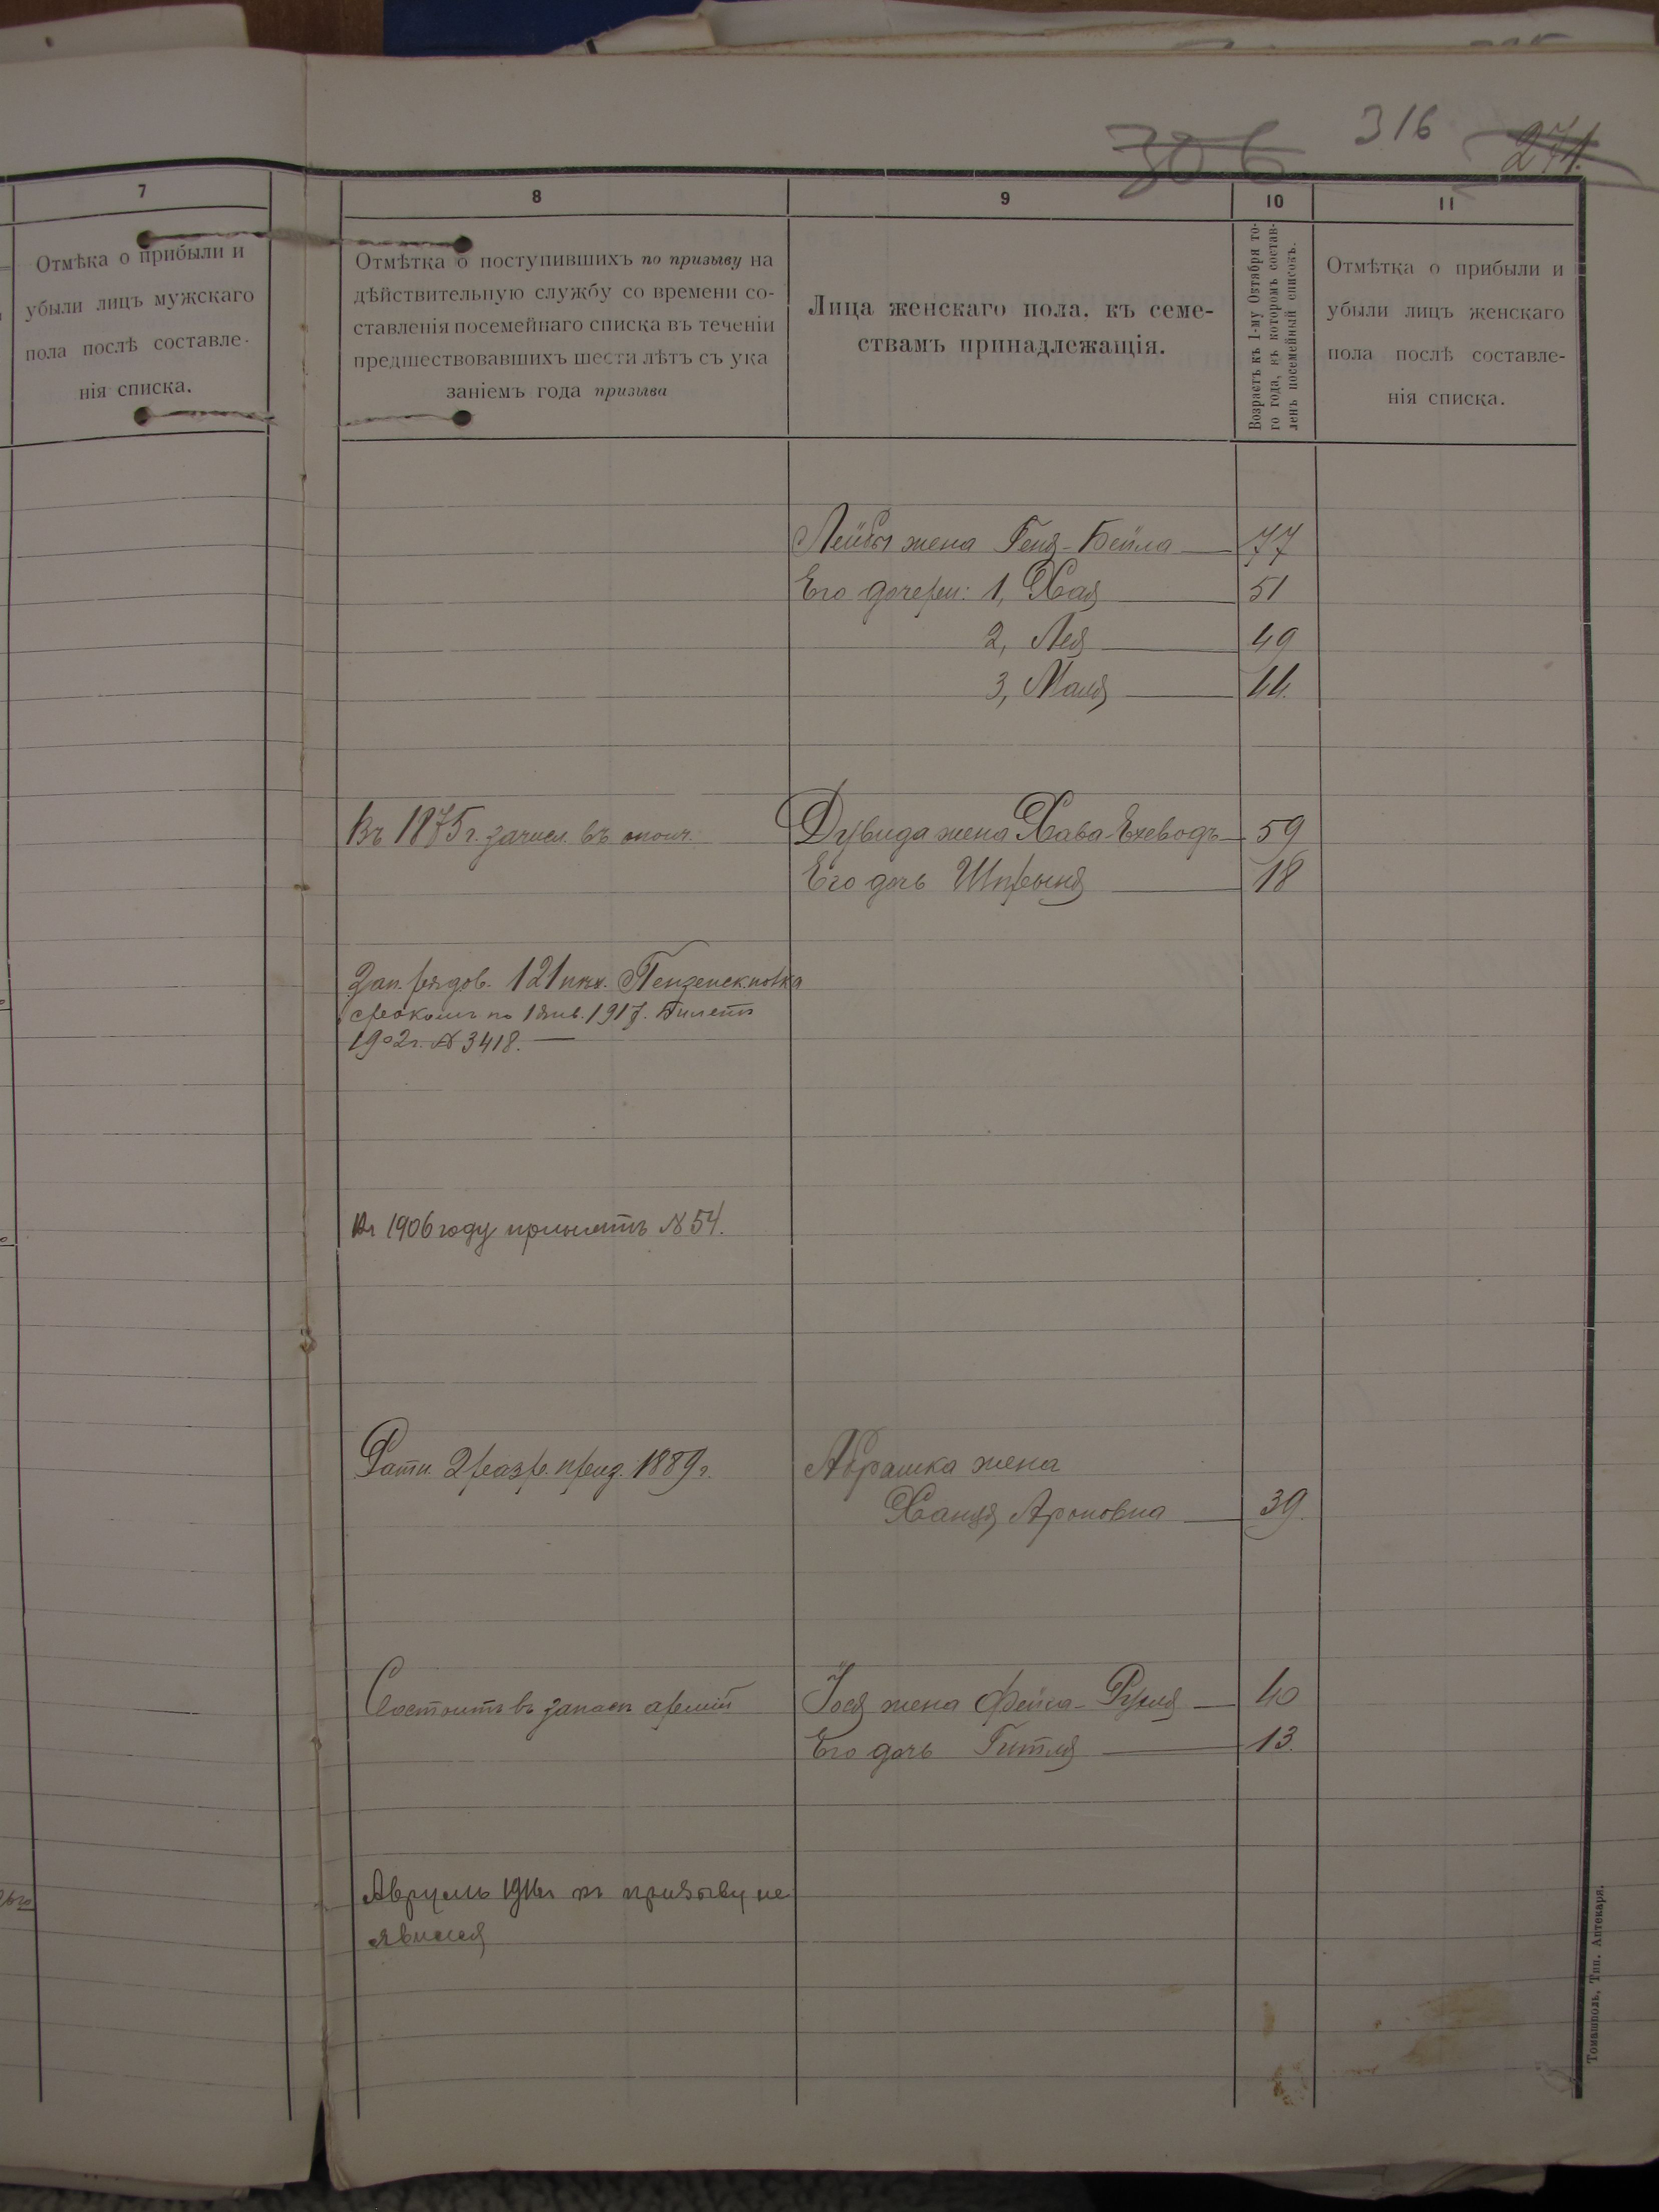 306 316 271.
7
Отмѣка о прибыли и
убыли лицъ мужскаго
пола послѣ составле-
нія списка.
8
Отмѣтка о поступившихъ по призыву на
дѣйствительную службу со времени со-
ставленія посемейнаго списка въ теченіи
предшествовавшихъ шести лѣтъ съ ука
заніемъ года призыва
9
Лица женскаго пола, къ семе-
ствамъ принадлежащія.
10
Возрастъ къ 1-му Октября то-
го года, къ которомъ состав-
ленъ посемейный списокъ.
11
Отмѣтка о прибыли и
убыли лицъ женскаго
пола послѣ составле-
нія списка.
Лейбы жена Геня-Бейла 77
Его дочери: 1, Хая 51
2, Лея 49
3, Маля 44.
Въ 1875 г. зачисл. въ ополч.
Дувида жена Хава-Ехеводъ 59
Его дочь Шпрыня 18
Зап. рядов. 121 пѣх. Пензенск. полка
срокомъ по 1 янв. 1917. Билетъ
1902 г. № 3418.
Въ 1906 году принятъ № 54.
Ратн. 2 разр. приз. 1889 г.
Абрашка жена
Ханця Ароновна 39.
Состоитъ въ запасѣ арміи
Іося жена Фейга-Рухля 40
Его дочь Гитля 13.
Аврумъ 1911 г къ призыву не
явился
Томашполь, Тип. Аптекаря.